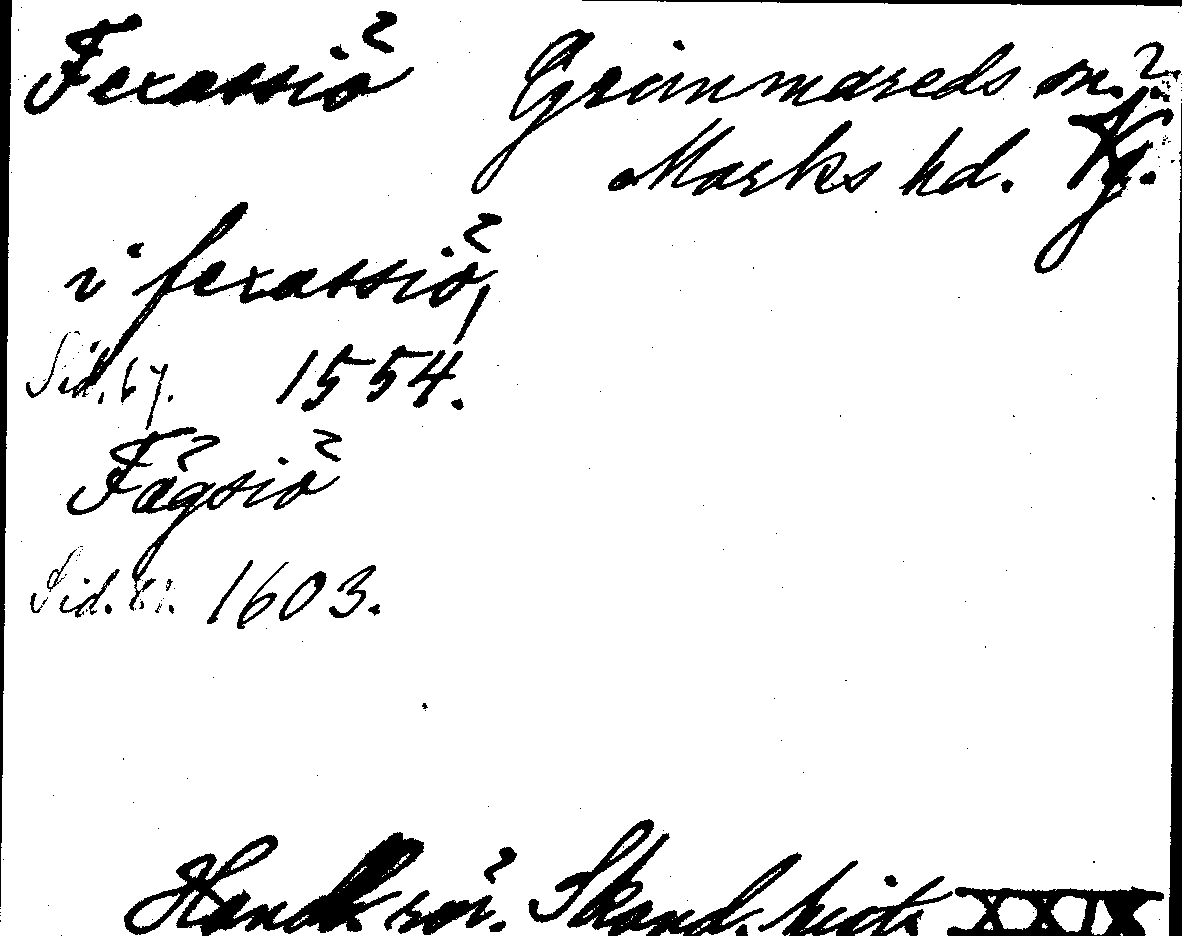 Fexassiö Grimmareds sn.?
Marks hd. Vg.
i fexassiö,
Sid. 67. 1554.
Fägsiö
Sid. 81. 1603.
Handl. rör. Skand. hist. XXIX